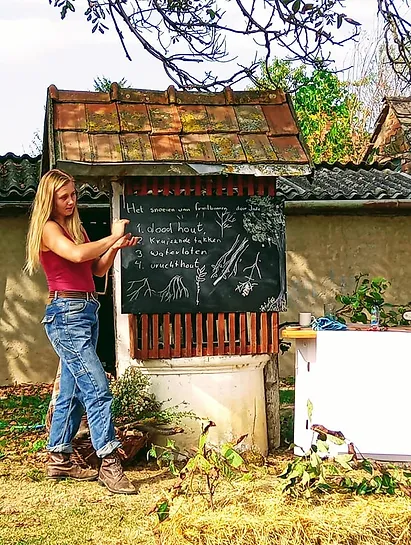 Het snoeien van fruitbomen door Jule
1. dood hout,
2. Kruisende takken
3 waterloten
4. vruchthout